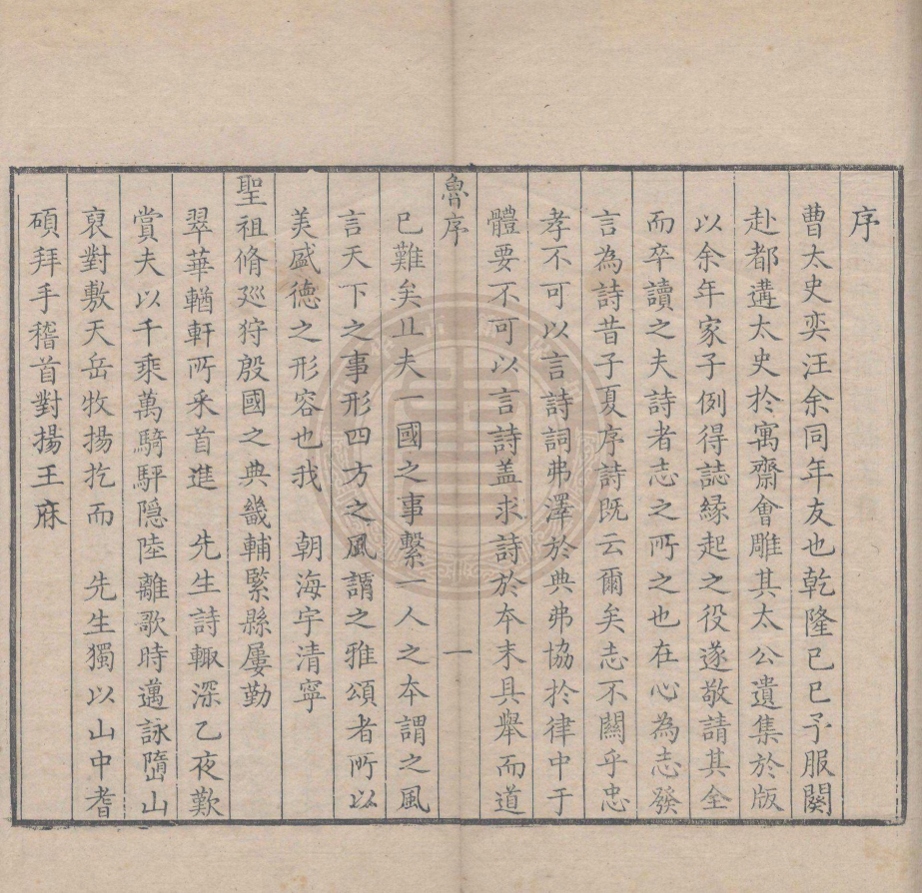 序
曹太史奕汪余同年友也乾隆己巳予服闋
赴都遘太史於寓齋會雕其太公遺集於版
以余年家子例得誌緣起之役遂敬請其全
而卒讀之夫詩者志之所之也在心為志發
言為詩昔子夏序詩既云爾矣志不關乎忠
孝不可以言詩詞弗澤於典弗協於律中于
體要不可以言詩盖求詩於本末具舉而道
魯序 一
已難矣且夫一國之事繫一人之本謂之風
言天下之事形四方之風謂之雅頌者所以
美盛德之形容也我 朝海宇清寧
聖祖脩廵狩殷國之典畿輔緊縣屢勤
翠華輶軒所采首進 先生詩輙深乙夜歎
賞夫以千乘萬騎駍隱陸離歌時邁詠墮山
裒對敷天岳牧揚扢而 先生獨以山中耆
碩拜手稽首對揚王庥